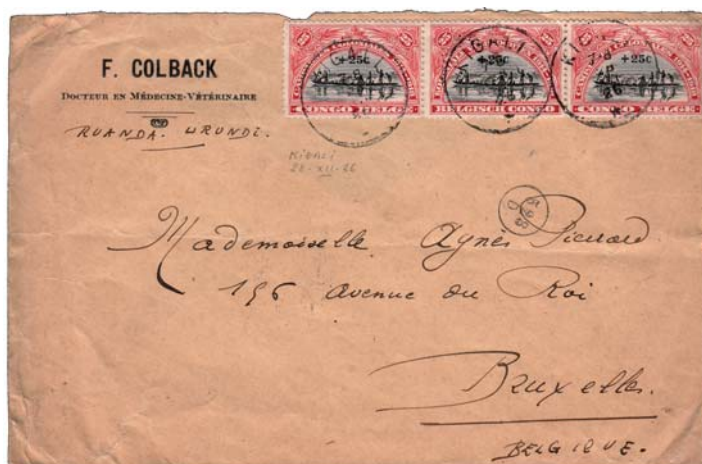 F. COLBACK
DOCTEUR EN MÉDECINE-VÉTÉRINAIRE
RUANDA. URUNDI.
+25c
CONGO BELGE
+25c
BELGISCH CONGO
+25c
CONGO BELGE
KIGALI
7-8
26
KIGALI
26-XII-26
Mademoiselle Agnès Pierrard
156 avenue du Roi
Bruxelles.
BELGIQUE.